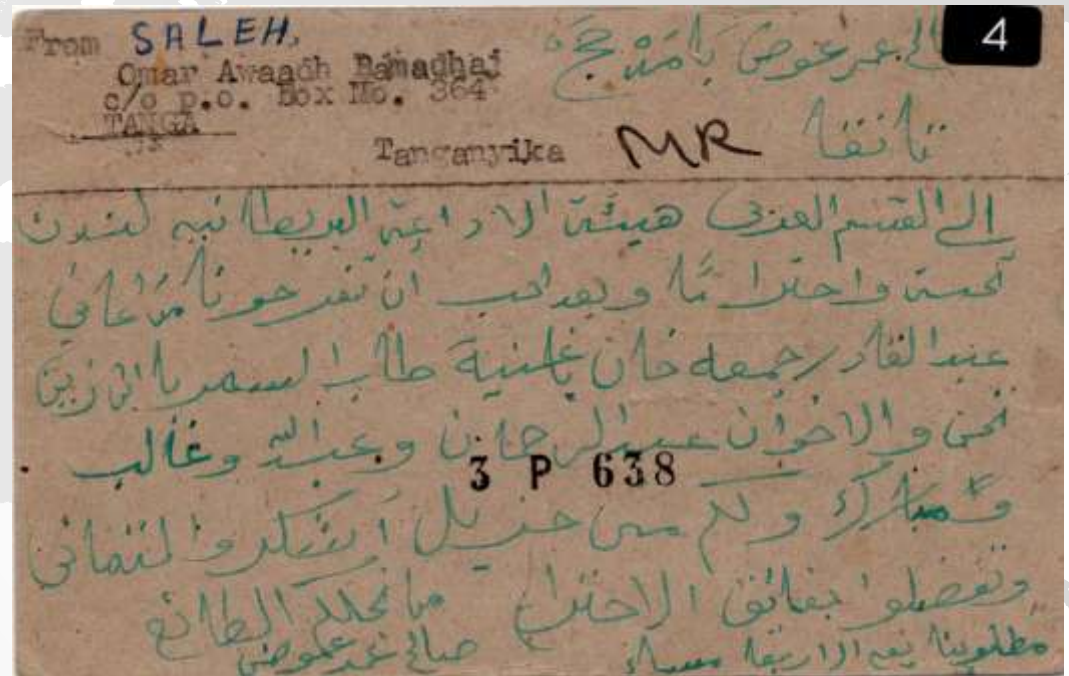 4
From SALEH,
Omar Awaadh Bamadhaj
c/o P.O. Box No. 364
TANGA
Tanganyika MR
عمر عوض بامدحج
تانقا
الى القسم العربي هيئة الاذاعة البريطانيه لندن
تحية واحتراما وبعد احب ان تفرحونا من اغاني
عبدالقادر جمعه خان باغنية طاب السمر يا
نحن والاخوان عبدالرحمان وعبدالله وغالب
3 P 638
ومبارك ولكم من جزيل الشكر والتهاني
وتفضلوا بفائق الاحترام
صالح عمر عوض
مطلوبنا الاربعا مساء